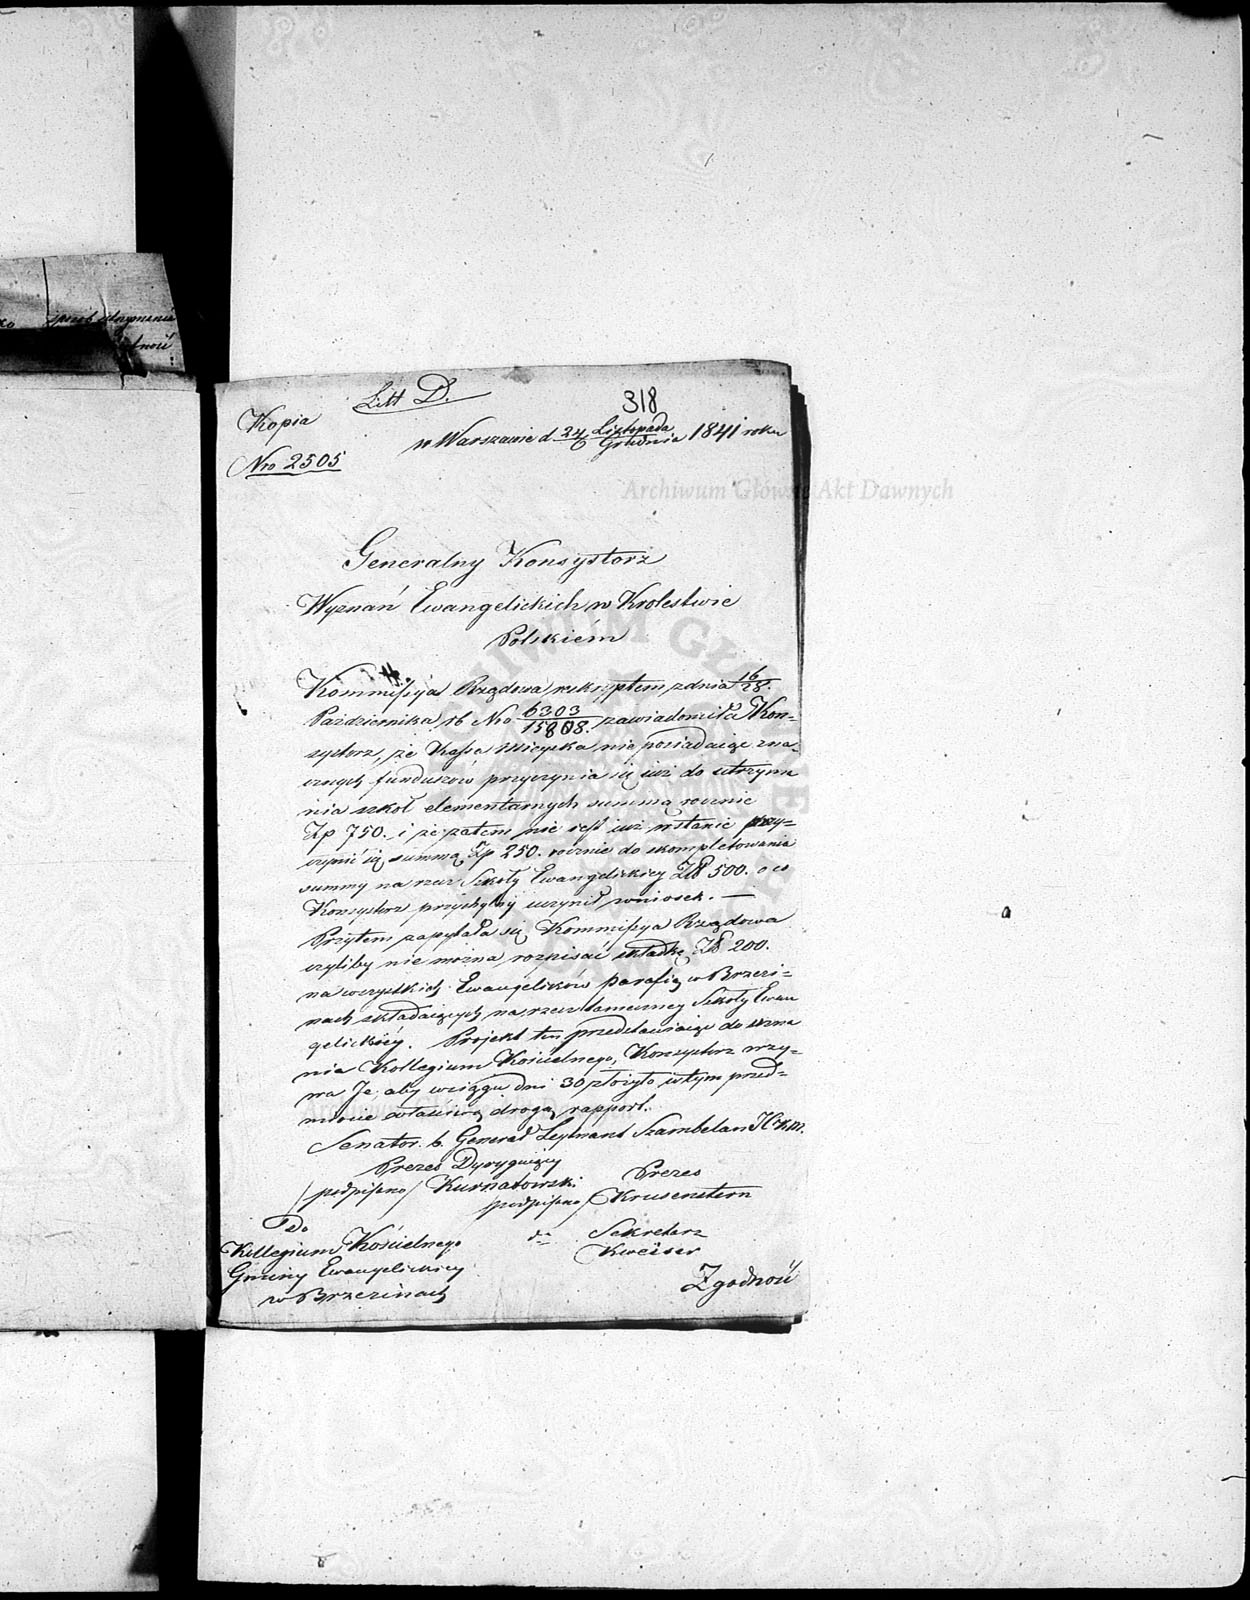 Litt D.
318
Kopia
w Warszawie d 24/6 Listopada/Grudnia 1841 roku
Nro 2505
Archiwum Główne Akt Dawnych
Generalny Konsystorz
Wyznań Ewangelickich w Krolestwie
Polskiém
Kommissya Rządowa reskryptem z dnia 16/28.
Października tb Nro 6303/15808. zawiadomiła Kon-
systorz, że Kassa Mieyska nie posiadaiąc zna-
cznych funduszów przyczynia się iuż do utrzyma
nia szkół elementarnych summą rocznie
Zp 750. i że zatem nie iest iuż w stanie przy-
czynić się summą Zp 250. rocznie do skompletowania
summy na rzecz Szkoły Ewangelickiey Zł 500. o co
Konsystorz przychylny uczynił wniosek. —
Przytem zapytała się Kommissya Rządowa
czyliby nie można rozpisać składkę Zł 200.
na wszystkich Ewangelików parafię w Brzezi-
nach składaiących na rzecz tameczney Szkoły Ewan
gelickiéy. Projekt ten przedstawiaiąc do uzna
nia Kollegium Kościelnego, Konsystorz wzy-
wa Je, aby w ciągu dni 30 złożyło w tym przed-
miocie właściwą drogą rapport.
Senator. b. Generał Leytnant Szambelan
Prezes Dyrygujący Prezes
/podpisano/ Kurnatowski /podpisano/ Krusenstern
Do
Sekretarz
Kollegium Kościelnego
Kweiser
Gminy Ewangelickiey
w Brzezinach
Zgodność